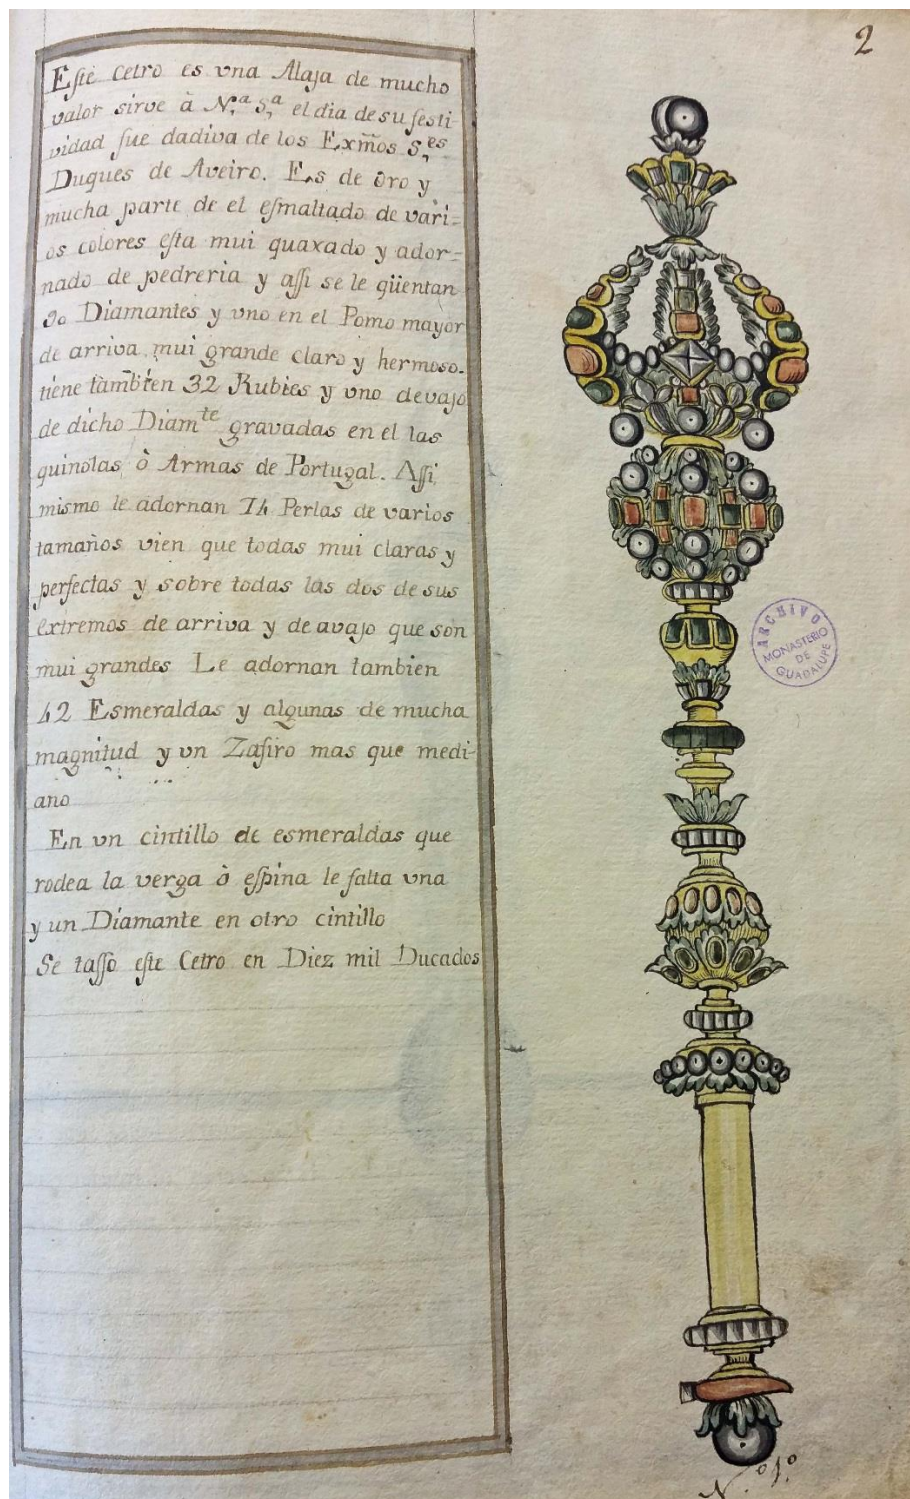 2
Este Cetro es vna Alaja de mucho
valor sirve à N.ª S.ª el dia de su festi-
vidad fue dadiva de los Exm̃os S.es
Duques de Aveiro. Es de oro y
mucha parte de el esmaltado de vari=
os colores esta mui quaxado y ador=
nado de pedreria y assi se le qüentan
90 Diamantes y vno en el Pomo mayor
de arriva mui grande claro y hermoso.
tiene tambien 32 Rubies y vno devajo
de dicho Diam.te gravadas en el las
quinolas ò Armas de Portugal. Assi
mismo le adornan 74 Perlas de varios
tamaños vien que todas mui claras y
perfectas y sobre todas las dos de sus
extremos de arriva y de avajo que son
mui grandes Le adornan tambien
42 Esmeraldas y algunas de mucha
magnitud y un Zafiro mas que medi-
ano
En vn cintillo de esmeraldas que
rodea la verga ò espina le falta vna
y un Diamante en otro cintillo
Se tasso este Cetro en Diez mil Ducados
ARCHIVO
MONASTERIO
DE
GUADALUPE
N.º 1.º